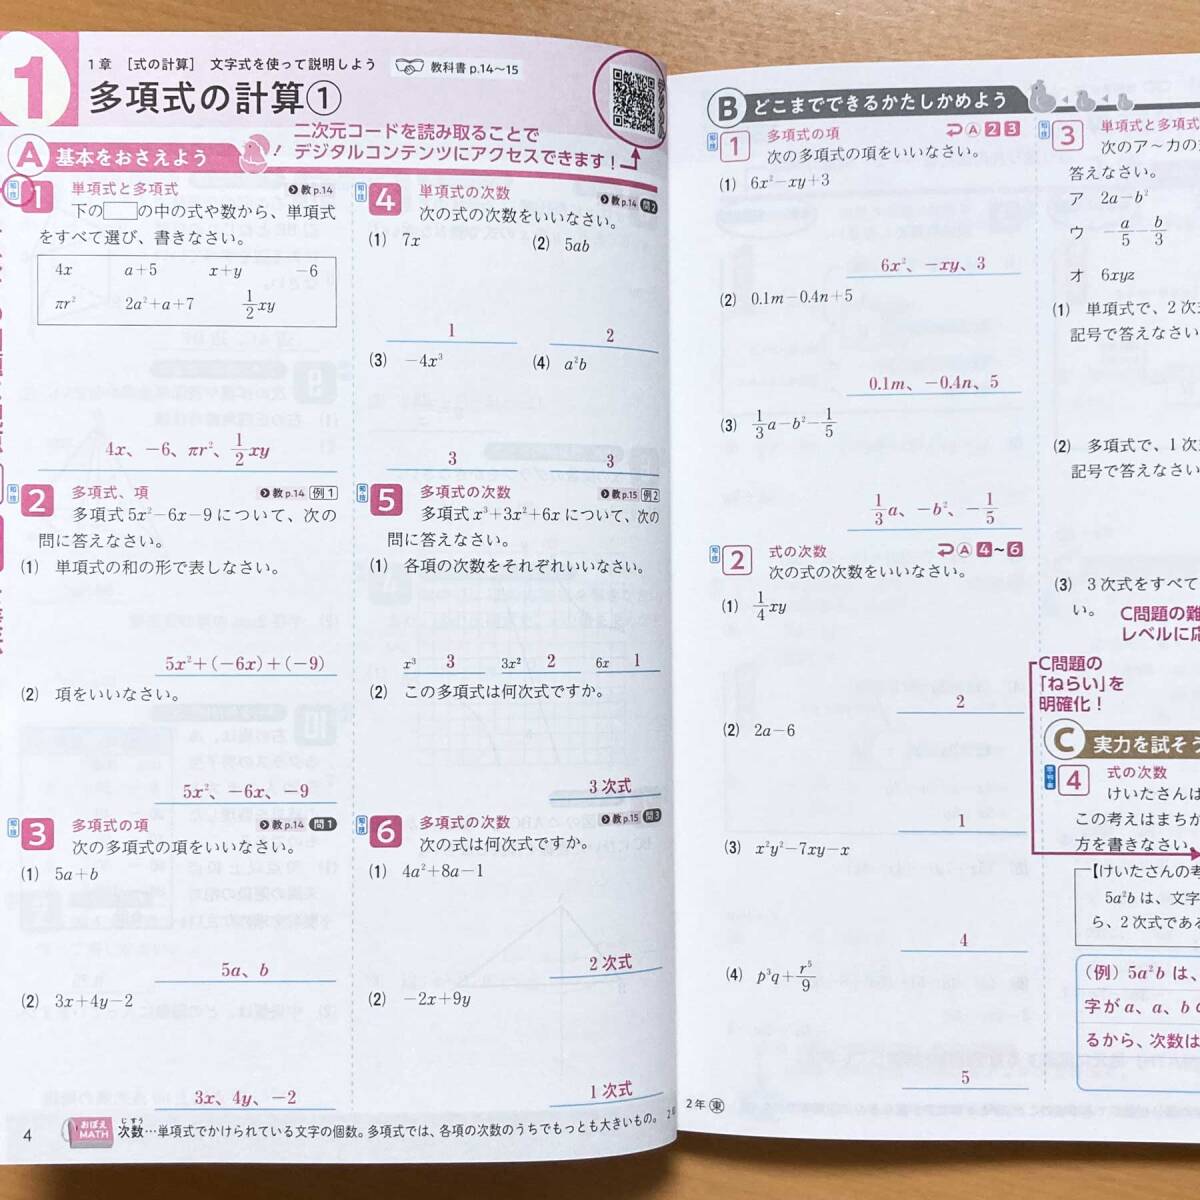 1
1章 [式の計算] 文字式を使って説明しよう 教科書 p.14〜15
多項式の計算①
二次元コードを読み取ることで
デジタルコンテンツにアクセスできます！
A 基本をおさえよう
知技
1 単項式と多項式 教p.14
下の□の中の式や数から、単項式
をすべて選び、書きなさい。
4x a+5 x+y −6
πr² 2a²+a+7 1/2xy
4x、−6、πr²、1/2xy
知技
2 多項式、項 教p.14 例1
多項式5x²−6x−9について、次の
問に答えなさい。
(1) 単項式の和の形で表しなさい。
5x²+(−6x)+(−9)
(2) 項をいいなさい。
5x²、−6x、−9
知技
3 多項式の項 教p.14 問1
次の多項式の項をいいなさい。
(1) 5a+b
5a、b
(2) 3x+4y−2
3x、4y、−2
知技
4 単項式の次数 教p.14 問2
次の式の次数をいいなさい。
(1) 7x (2) 5ab
1 2
(3) −4x³ (4) a²b
3 3
知技
5 多項式の次数 教p.15 例2
多項式x³+3x²+6xについて、次の
問に答えなさい。
(1) 各項の次数をそれぞれいいなさい。
x³ 3 3x² 2 6x 1
(2) この多項式は何次式ですか。
3次式
知技
6 多項式の次数 教p.15 問3
次の式は何次式ですか。
(1) 4a²+8a−1
2次式
(2) −2x+9y
1次式
4 おぼえMATH 次数…単項式でかけられている文字の個数。多項式では、各項の次数のうちでもっとも大きいもの。
じすう
B どこまでできるかたしかめよう
知技
1 多項式の項 A 2 3
次の多項式の項をいいなさい。
(1) 6x²−xy+3
6x²、−xy、3
(2) 0.1m−0.4n+5
0.1m、−0.4n、5
(3) 1/3a−b²−1/5
1/3a、−b²、−1/5
知技
2 式の次数 A 4〜6
次の式の次数をいいなさい。
(1) 1/4xy
2
(2) 2a−6
1
(3) x²y²−7xy−x
4
(4) p³q+r⁵/9
5
2年 東
知技
3 単項式と多項式
次のア〜カの
答えなさい。
ア 2a−b²
ウ −a/5−b/3
オ 6xyz
(1) 単項式で、2次
記号で答えなさい
(2) 多項式で、1次
記号で答えなさい
(3) 3次式をすべて
い。
C問題の難
レベルに応
C問題の
「ねらい」を
明確化！
C 実力を試そう
4 式の次数
けいたさんは
この考えはまちが
方を書きなさい。
【けいたさんの考
5a²bは、文字
ら、2次式である
(例) 5a²bは、
字がa、a、bの
るから、次数は